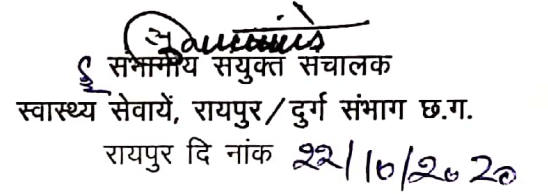 संभागीय संयुक्त संचालक
स्वास्थ्य सेवायें, रायपुर/दुर्ग संभाग छ.ग.
रायपुर दि नांक 22/10/2020